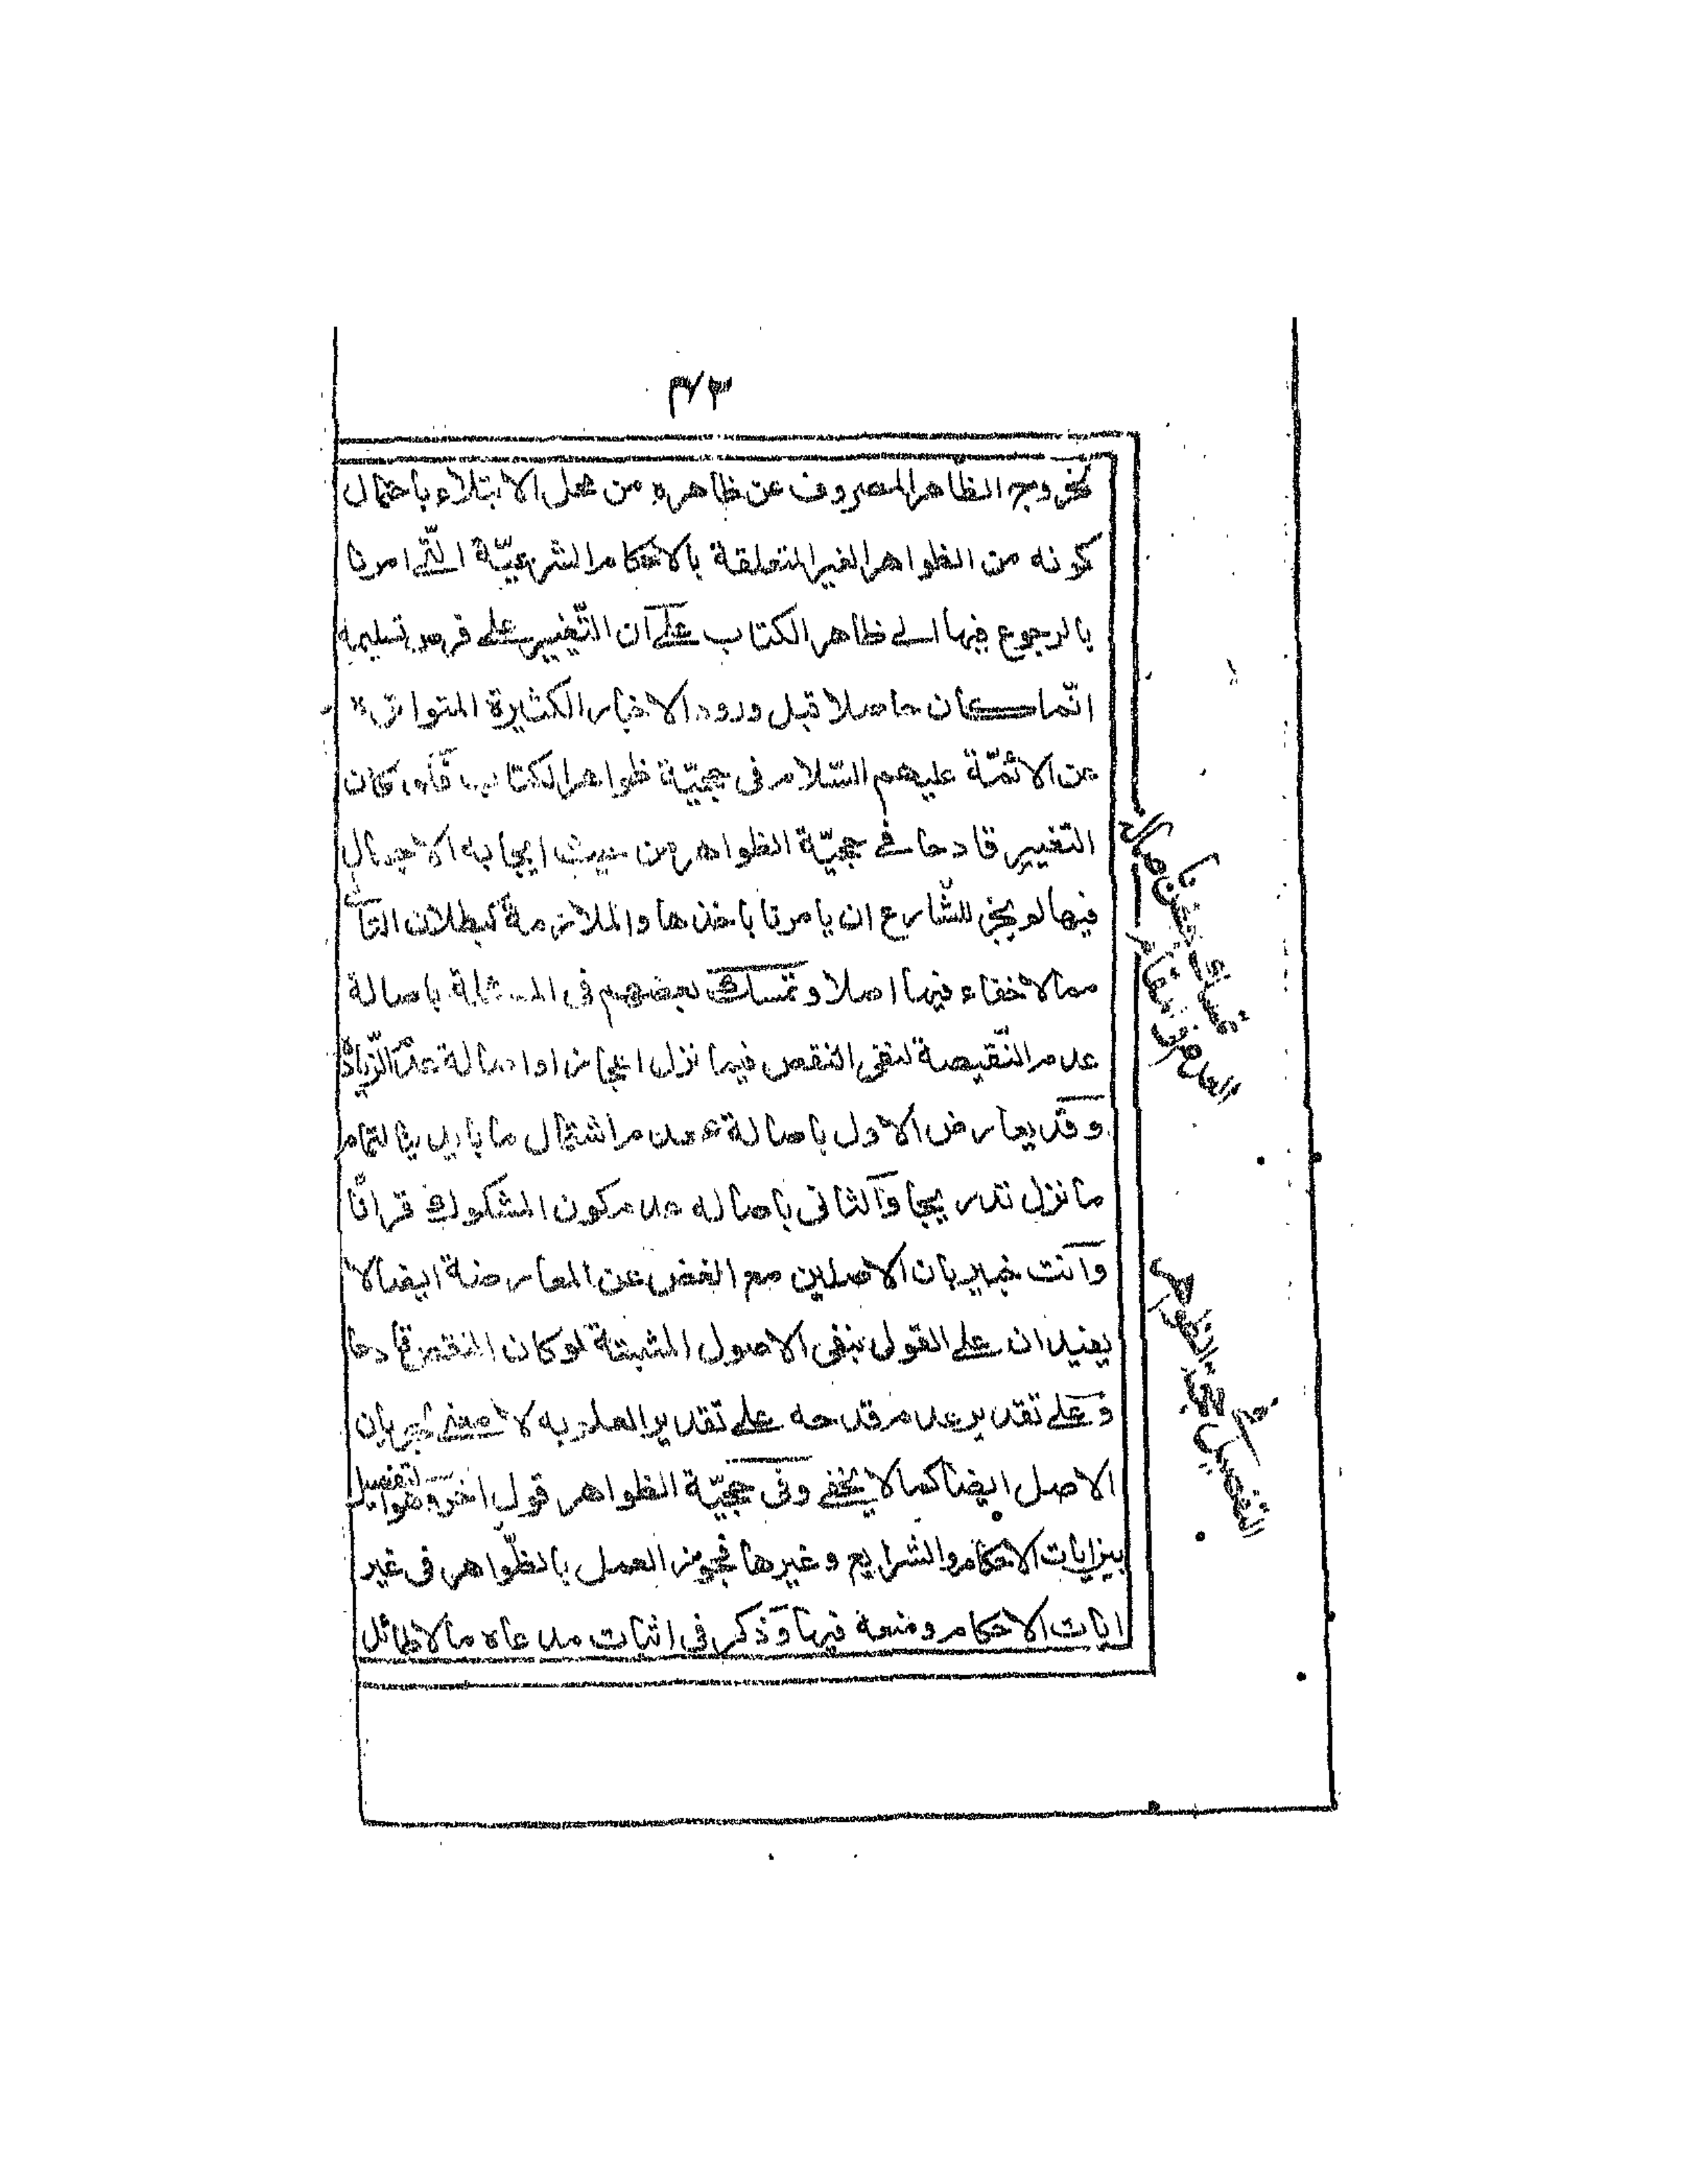 ٣٧٣
لخروجه الظاهر المصروف عن ظاهره من محل الابتلاء باحتمال
كونه من الظواهر الغير المتعلقة بالاحكام الشرعيّة الّتى امرنا
بالرجوع فيها الى ظاهر الكتاب على ان التّغيير على فرض تسليمه
انّما كان حاصلا قبل ورود الاخبار الكثيرة المتواترة
عن الائمّة عليهم السّلام فى حجيّة ظواهر الكتاب فلو كان
التّغيير قادحا فى حجيّة الظواهر من حيث ايجابه الاجمال
فيها لم يجز للشّارع ان يامرنا باخذها والملازمة كبطلان التالى
مما لاخفاء فيها اصلا وتمسك بعضهم فى المسئلة باصالة
عدم النّقيصة لنفى النقص فيما نزل اعجازا واصالة عدم الزّيادة
وقد يعارض الاول باصالة عدم اشتمال ما بايدينا لتمام
ما نزل تدريجا والثانى باصاله عدم كون المشكوك قرانًا
وانت خبير بان الاصلين مع الغض عن المعارضة ايضا لا
يفيدان على القول بنفى الاصول المثبتة لو كان النقص قادحا
وعلى تقدير عدم قدحه على تقدير العلم به لا معنى لجريان
الاصل ايضا كما لا يخفى وفى حجيّة الظواهر قول اخر وهو التفصيل
بين ايات الاحكام والشرايع وغيرها فجوز العمل بالظّواهر فى غير
ايات الاحكام ومنعه فيها وذكر فى اثبات مدعاه ما لا طائل
التفصيل فى حجية الظواهر